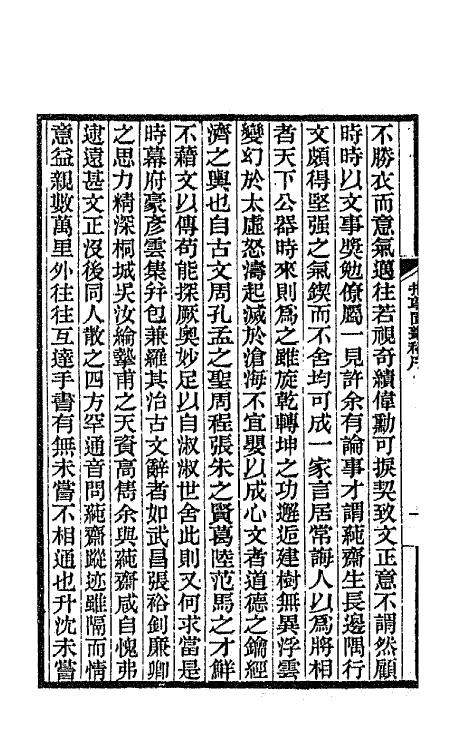 不勝衣而意氣邁往若視奇績偉勳可捩契致文正意不謂然顧
時時以文事獎勉僚屬一見許余有論事才謂蒓齋生長邊隅行
文頗得堅强之氣鍥而不舍均可成一家言居常誨人以爲將相
者天下公器時來則爲之雖旋乾轉坤之功邂逅建樹無異浮雲
變幻於太虛怒濤起滅於滄海不宜嬰以成心文者道德之鑰經
濟之輿也自古文周孔孟之聖周程張朱之賢葛陸范馬之才鮮
不藉文以傳苟能探厥奧妙足以自淑淑世舍此則又何求當是
時幕府豪彥雲集幷包兼羅其治古文辭者如武昌張裕釗廉卿
之思力精深桐城吳汝綸摯甫之天資高雋余與蒓齋咸自愧弗
逮遠甚文正沒後同人散之四方罕通音問蒓齋蹤迹雖隔而情
意益親數萬里外往往互達手書有無未嘗不相通也升沈未嘗